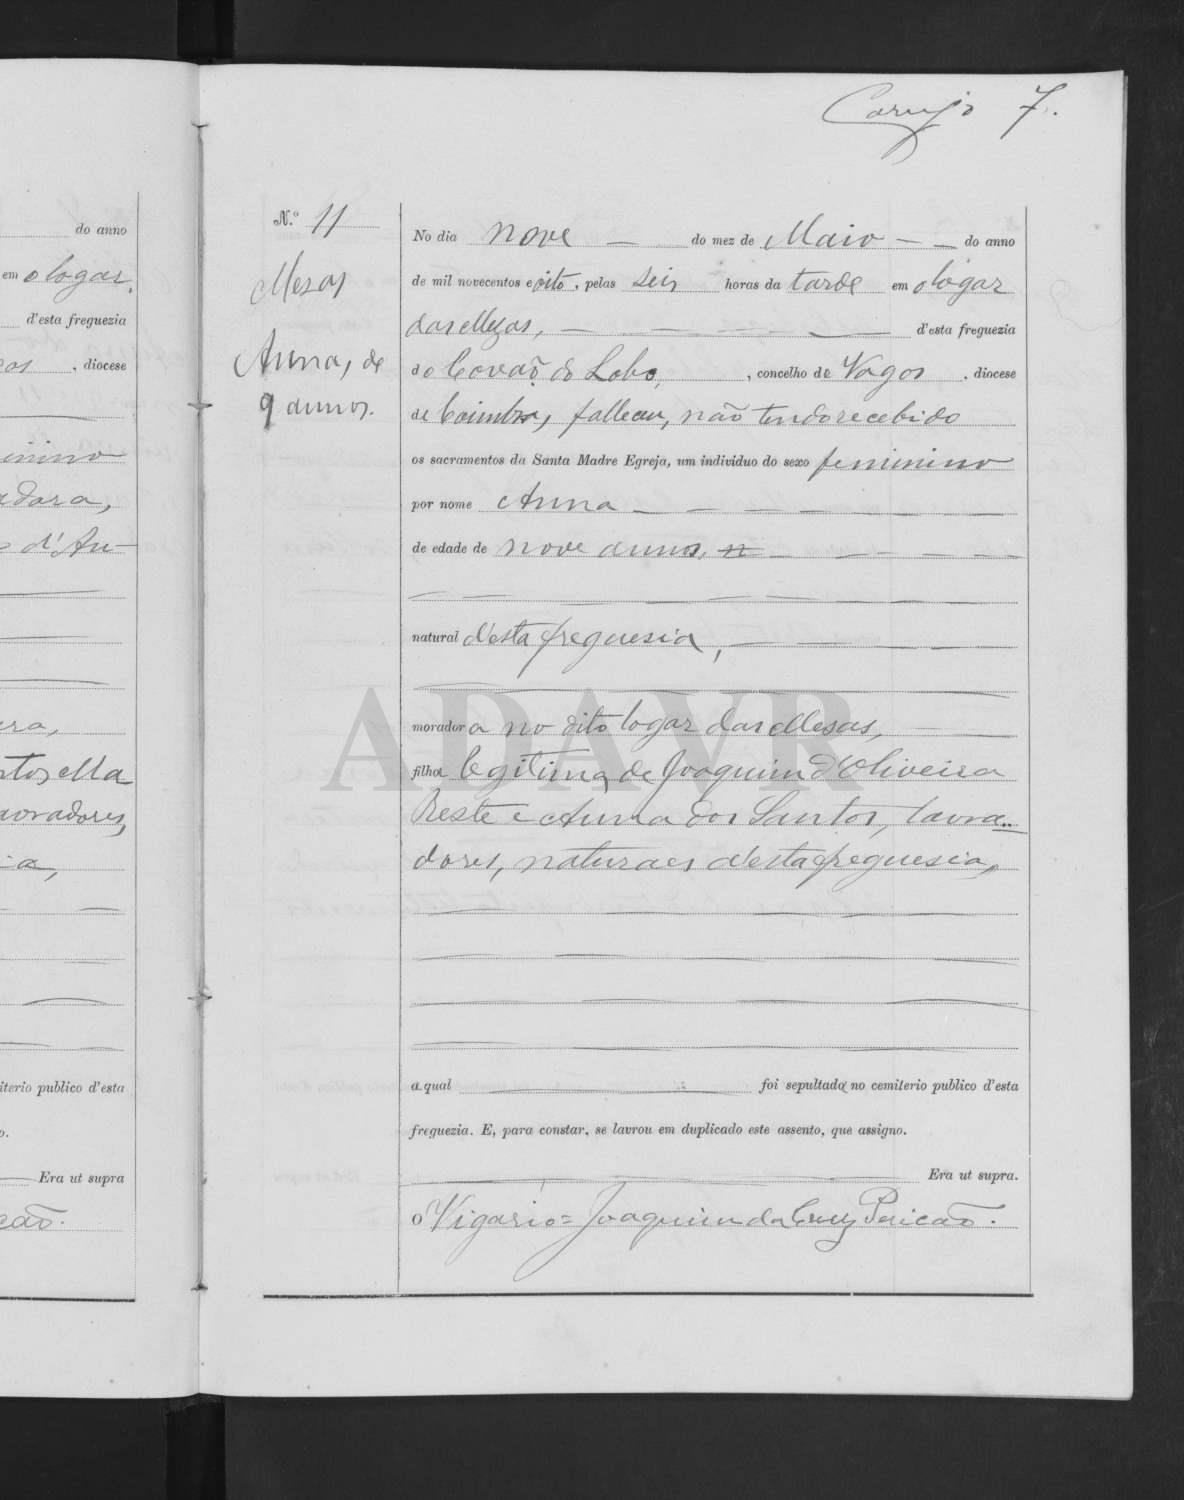 Corujo 7.
N.º 11
Mesas
Anna, de
9 annos.
No dia nove do mez de Maio do anno
de mil novecentos e oito, pelas seis horas da tarde em o logar
das Mezas, d'esta freguezia
do Covão do Lobo, concelho de Vagos, diocese
de Coimbra, falleceu, não tendo recebido
os sacramentos da Santa Madre Egreja, um individuo do sexo feminino
por nome Anna
de edade de nove annos, n
natural d'esta freguesia,
moradora no dito logar das Mesas,
filha legitima de Joaquim d'Oliveira
Reste e Anna dos Santos, lavra-
dores, naturaes d'esta freguesia,
a qual foi sepultada no cemiterio publico d'esta
freguezia. E, para constar, se lavrou em duplicado este assento, que assigno.
Era ut supra.
O Vigario = Joaquim da Cruz Pericão.
do anno
em o logar
d'esta freguezia
, diocese
adora,
d'An-
ra,
tos Ma
avradores,
ia,
iterio publico d'esta
o.
Era ut supra
cão.
ADAVR